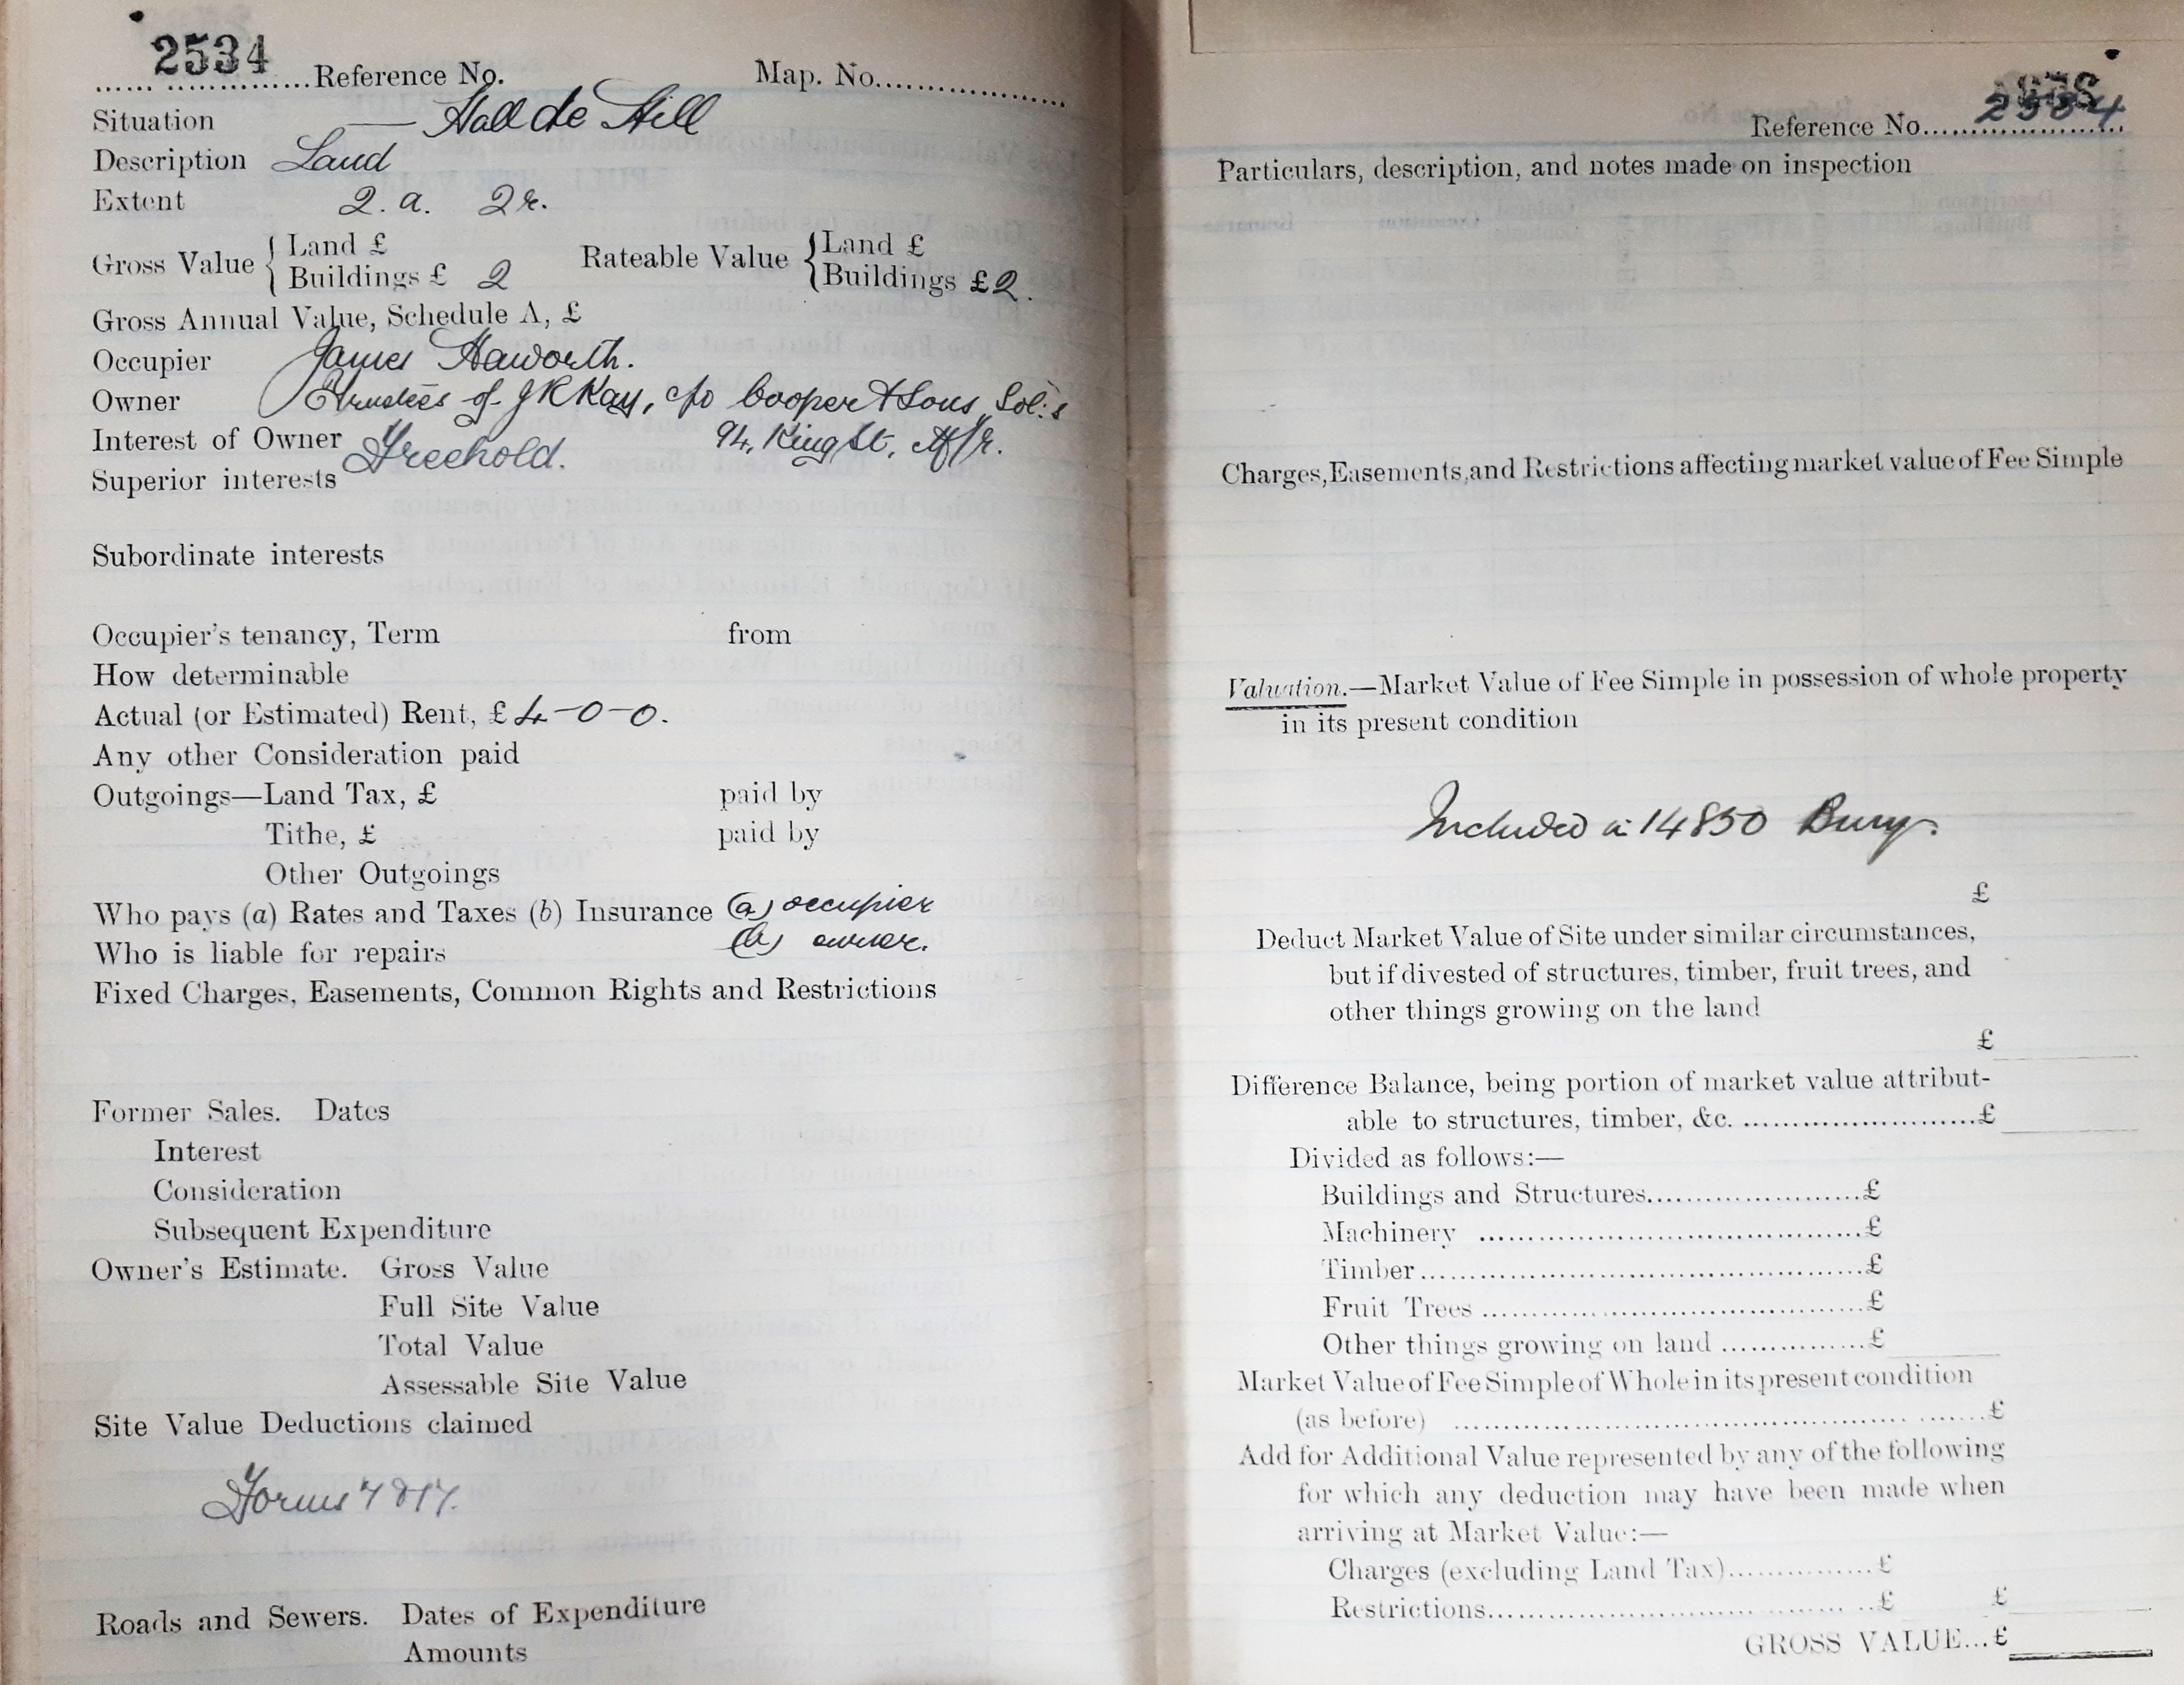 2534 Reference No. Map. No.
Situation — Hall de Hill
Description Land
Extent 2. a. 2 r.
Gross Value { Land £
Buildings £ 2
Rateable Value { Land £
Buildings £ 2.
Gross Annual Value, Schedule A, £
Occupier James Haworth.
Owner Trustees of J R Kay, c/o Cooper & Sons, Sol:s
94, King St, M/r.
Interest of Owner Freehold.
Superior interests
Subordinate interests
Occupier's tenancy, Term from
How determinable
Actual (or Estimated) Rent, £ 4-0-0.
Any other Consideration paid
Outgoings—Land Tax, £ paid by
Tithe, £ paid by
Other Outgoings
Who pays (a) Rates and Taxes (b) Insurance (a) occupier
Who is liable for repairs (b) owner.
Fixed Charges, Easements, Common Rights and Restrictions
Former Sales. Dates
Interest
Consideration
Subsequent Expenditure
Owner's Estimate. Gross Value
Full Site Value
Total Value
Assessable Site Value
Site Value Deductions claimed
Roads and Sewers. Dates of Expenditure
Amounts
Reference No. 2534
Particulars, description, and notes made on inspection
Charges, Easements, and Restrictions affecting market value of Fee Simple
Valuation.—Market Value of Fee Simple in possession of whole property
in its present condition
Included in 14850 Bury.
£
Deduct Market Value of Site under similar circumstances,
but if divested of structures, timber, fruit trees, and
other things growing on the land
£
Difference Balance, being portion of market value attribut-
able to structures, timber, &c. £
Divided as follows:—
Buildings and Structures £
Machinery £
Timber £
Fruit Trees £
Other things growing on land £
Market Value of Fee Simple of Whole in its present condition
(as before) £
Add for Additional Value represented by any of the following
for which any deduction may have been made when
arriving at Market Value:—
Charges (excluding Land Tax) £
Restrictions £ £
GROSS VALUE... £